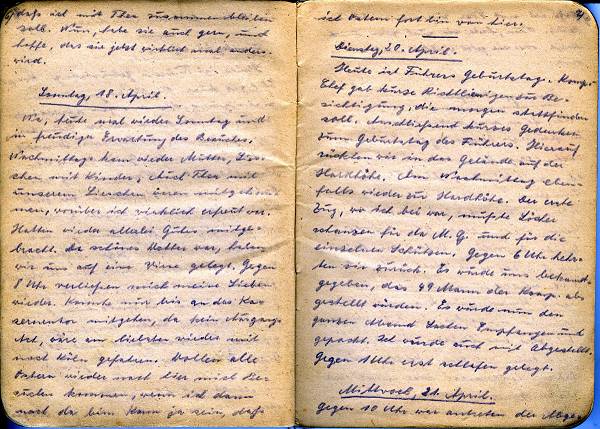 daß ich mit Ilse zusammenbleiben
soll. Nun, habe sie auch gern, und
hoffe, das sie jetzt wirklich mal anders
wird.
Sonntag, 18. April.
Na, heute mal wieder Sonntag und
in freudiger Erwartung des Besuches.
Nachmittags kam wieder Mutter,
mit Kinder, Auch Ilse mit
unserem Lieschen waren mitgekom-
men, worüber ich wirklich erfreut war.
Hatten wieder allerlei Gutes mitge-
bracht. Da schönes Wetter war, haben
wir uns auf eine Wiese gelegt. Gegen
8 Uhr verließen mich meine Lieben
wieder. Konnte nur bis an das Ka-
sernentor mitgehen, da kein Ausgang
ist, wäre am liebsten wieder mit
nach Köln gefahren. Wollen alle
Ostern wieder nach hier mich be-
suchen kommen, wenn ich dann
noch da bin. Kann ja sein, daß
4
ich Ostern fort bin von hier.
Dienstag, 20. April.
Heute ist Führers Geburtstag. Komp.
Chef gab kurze Richtlinien zur Be-
sichtigung, die morgen stattfinden
soll. Anschließend kurzes Gedenken
zum Geburtstag des Führers. Hierauf
rückten wir in das Gelände auf der
Hardhöhe. Am Nachmittag eben-
falls wieder zur Hardhöhe. Der erste
Zug, wo ich bei war, mußte Löcher
schanzen für da M.G. und für die
einzelnen Schützen. Gegen 6 Uhr kehr-
ten wir zurück. Es wurde uns bekannt-
gegeben, das 49 Mann der Komp. ab-
gestellt würden. Es wurde nun den
ganzen Abend Sachen Empfangen und
gepackt. Ich wurde auch mit Abgestellt.
Gegen 1 Uhr erst schlafen gelegt.
Mittwoch, 21. April.
Gegen 10 Uhr war antreten der